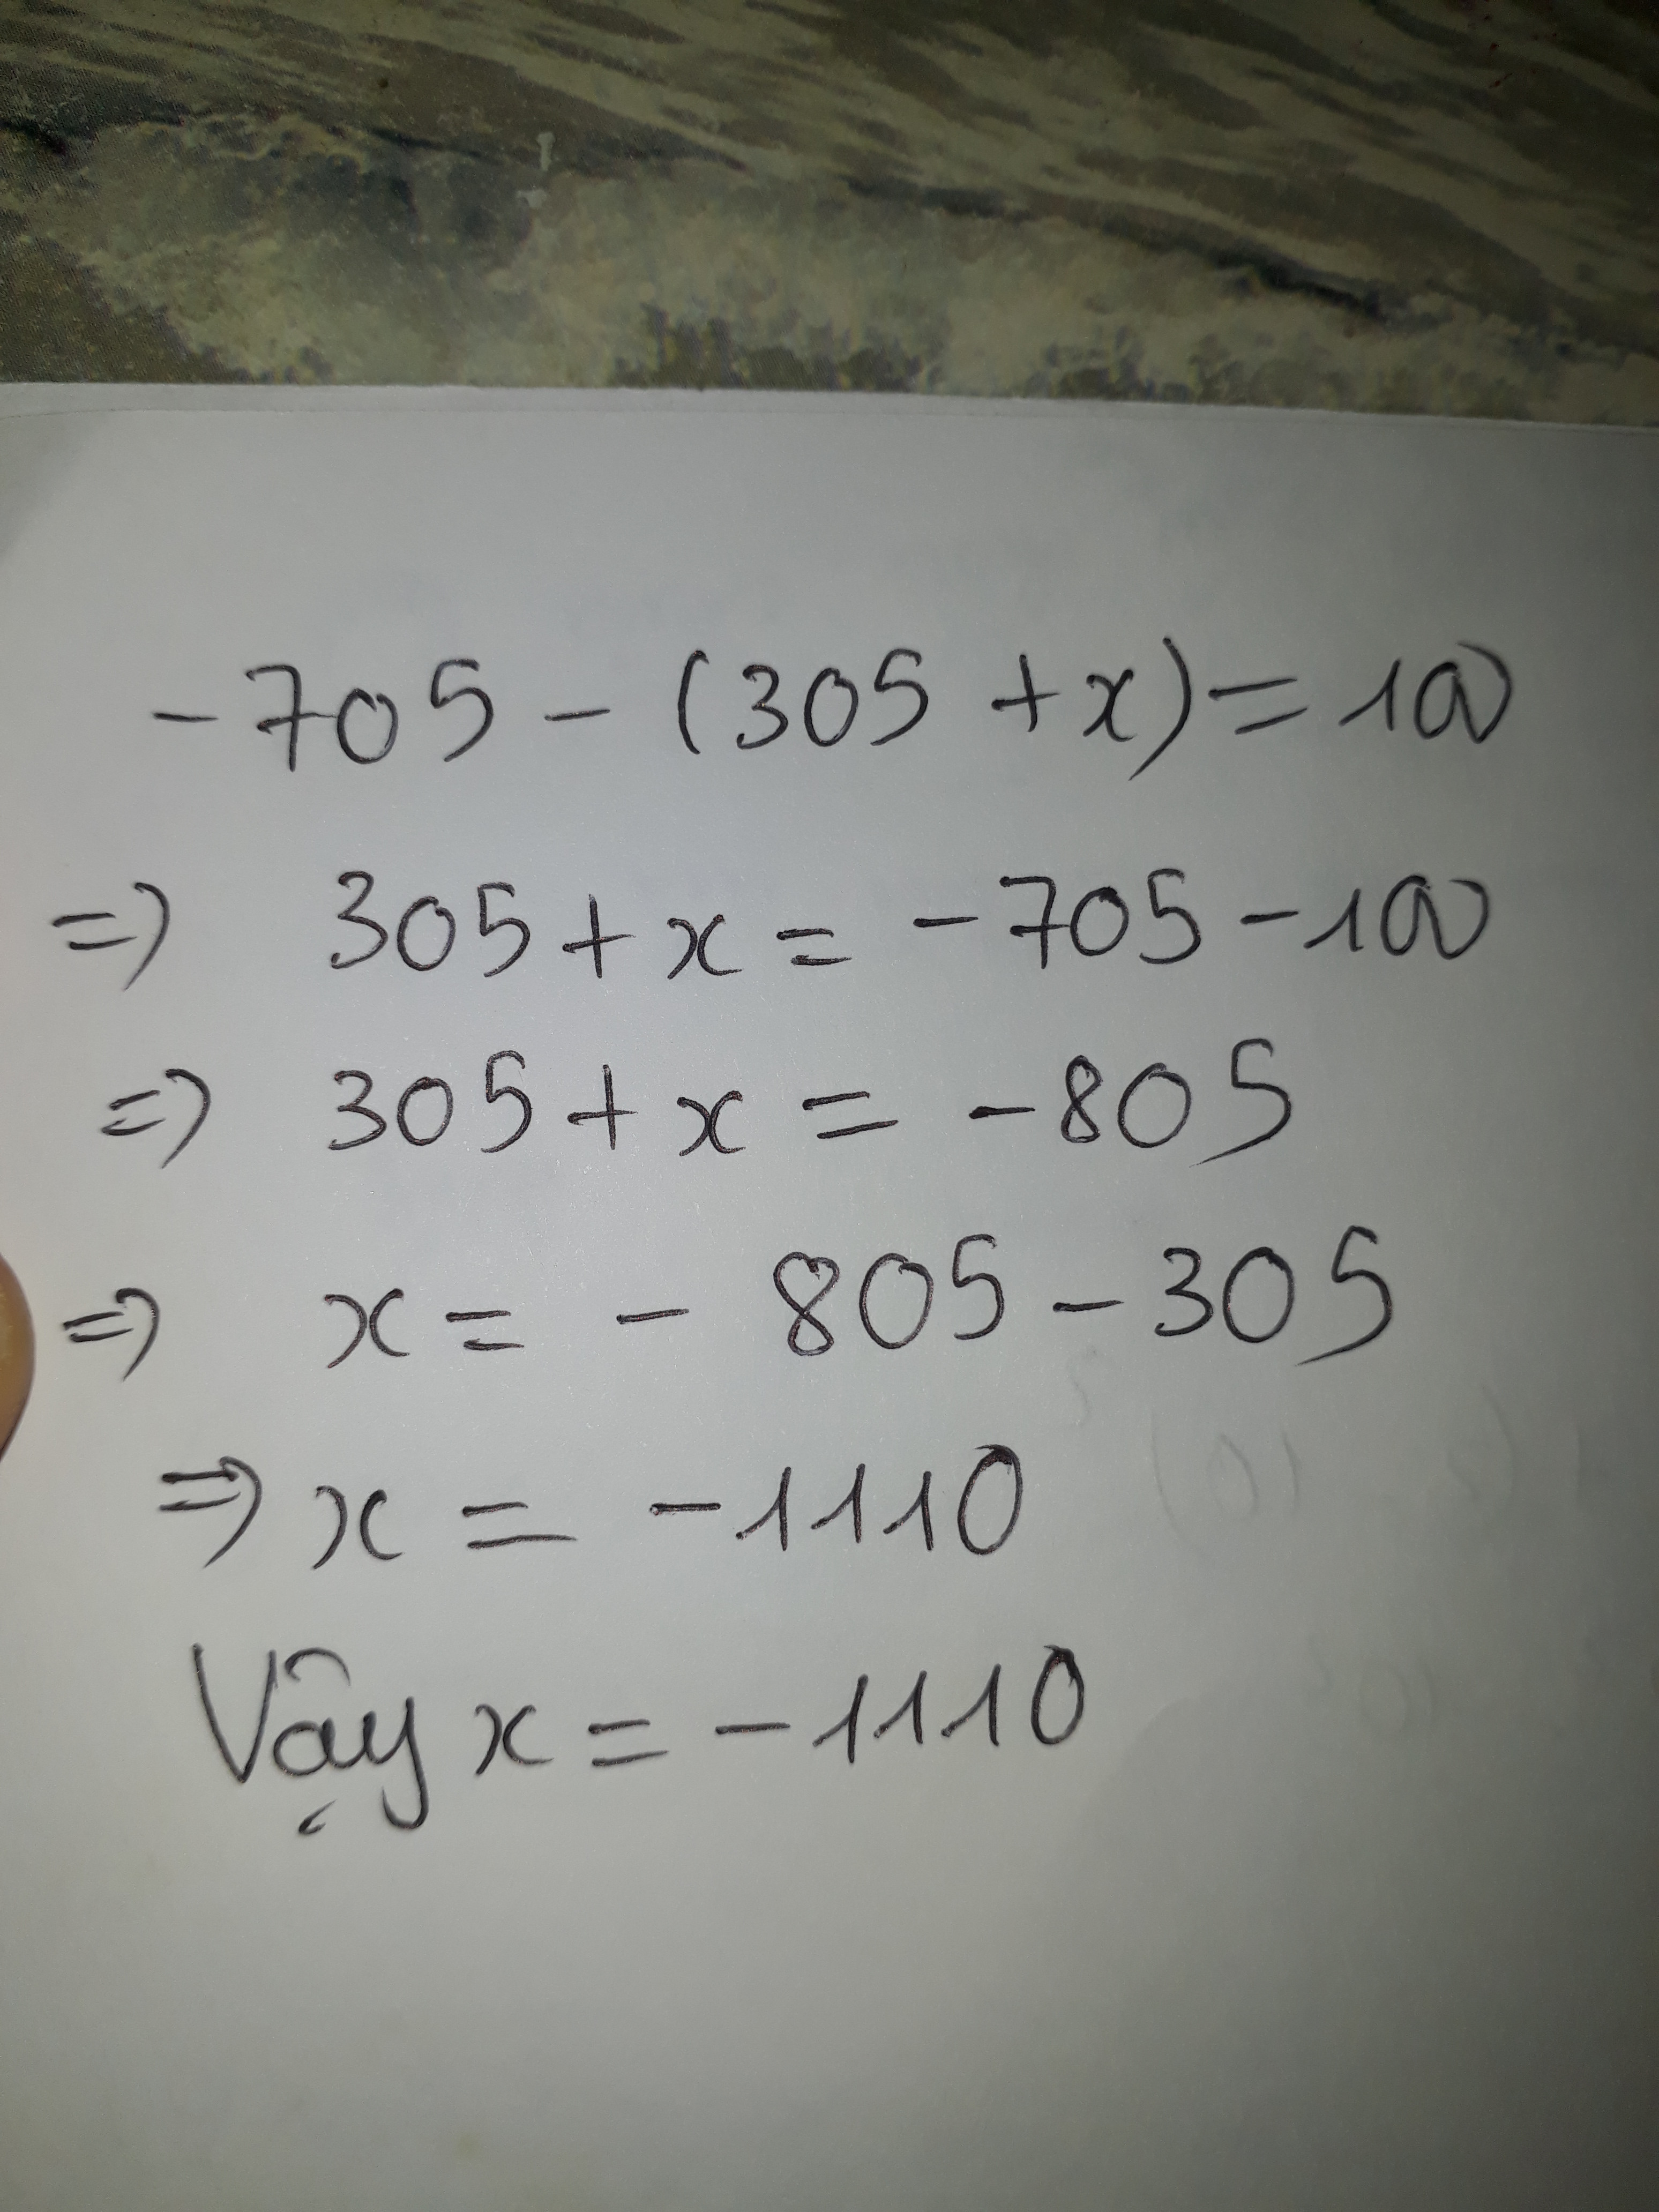 -705 - (305 + x) = 100
=> 305 + x = -705 - 100
=> 305 + x = -805
=> x = - 805 - 305
=> x = -1110
Vậy x = -1110